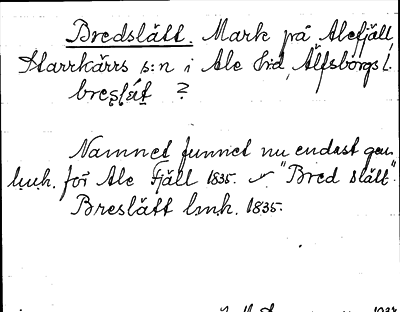 Bredslätt. Mark på Alefjäll,
Starrkärrs s:n i Ale hd, Älfsborgs l.
breslät ?
Namnet funnet nu endast gen.
lmk. för Ale Fjäll 1835. "Bred slätt".
Breslätt lmk. 1835.